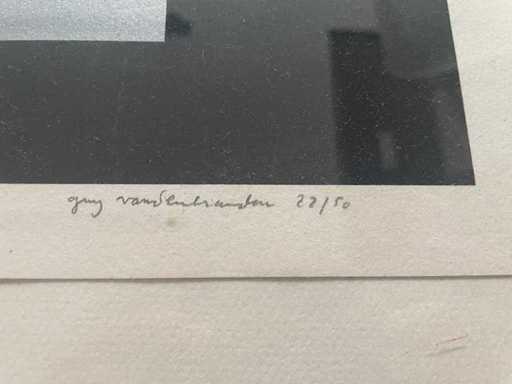 guy vandenbranden 28/50